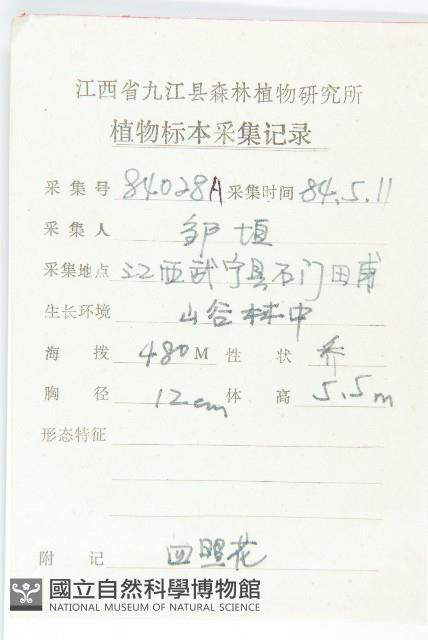 江西省九江县森林植物研究所
植物标本采集记录
采集号 84028A 采集时间 84.5.11
采集人 邹垣
采集地点 江西武宁县石门田
生长环境 山谷林中
海拨 480M 性状 乔
胸径 12cm 体高 5.5m
形态特征
附记 四照花
國立自然科學博物館
NATIONAL MUSEUM OF NATURAL SCIENCE